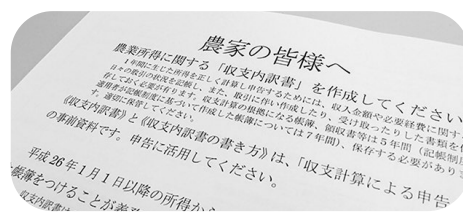 農家の皆様へ
農業所得に関する「収支内訳書」を作成してください
１年間に生じた所得を正しく計算し申告するためには、収入金額や必要経費に関す
日々の取引の状況を記帳し、また、取引に伴い作成したり、受け取ったりした書類を保
存しておく必要が有ります。収支計算の根拠になる帳簿、領収書等は５年間（記帳制
適用者が記帳制度に基づいて作成した帳簿については７年間）、保存する必要があり
す。適切に保管してください。
《収支内訳書》と《収支内訳書の書き方》は、「収支計算による申告
の事前資料です。申告に活用してください。
平成26年１月１日以降の所得から
帳簿をつけることが義務
収支内訳書は